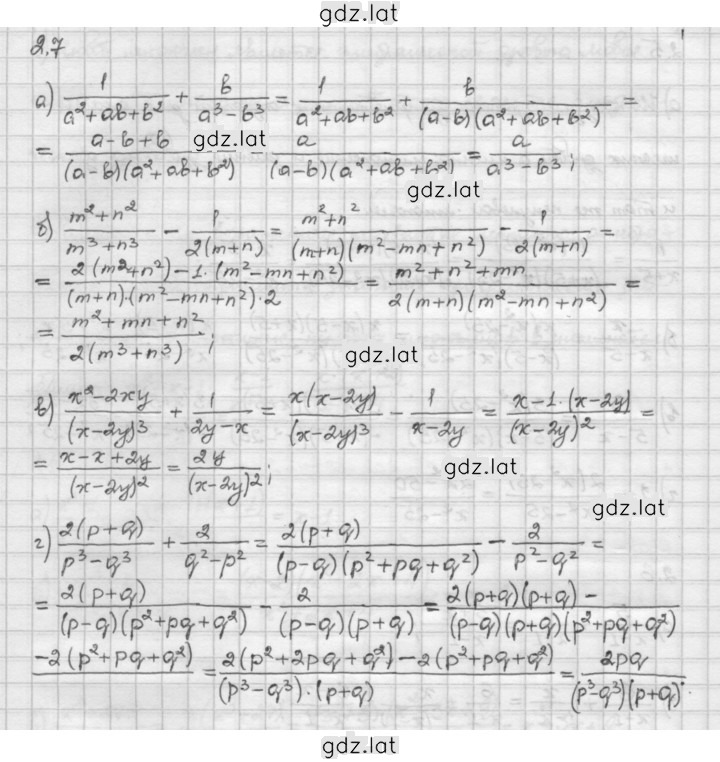 gdz.lat
2.7
а) 1/(a²+ab+b²) + b/(a³−b³) = 1/(a²+ab+b²) + b/((a−b)(a²+ab+b²)) =
= (a−b+b)/((a−b)(a²+ab+b²)) − a/((a−b)(a²+ab+b²)) = a/(a³−b³);
gdz.lat
gdz.lat
б) (m²+n²)/(m³+n³) − 1/(2(m+n)) = (m²+n²)/((m+n)(m²−mn+n²)) − 1/(2(m+n)) =
= (2(m²+n²)−1·(m²−mn+n²))/((m+n)·(m²−mn+n²)·2) = (m²+n²+mn)/(2(m+n)(m²−mn+n²)) =
= (m²+mn+n²)/(2(m³+n³));
gdz.lat
в) (x²−2xy)/(x−2y)³ + 1/(2y−x) = x(x−2y)/(x−2y)³ − 1/(x−2y) = (x−1·(x−2y))/(x−2y)² =
= (x−x+2y)/(x−2y)² = 2y/(x−2y)²;
gdz.lat
gdz.lat
г) 2(p+q)/(p³−q³) + 2/(q²−p²) = 2(p+q)/((p−q)(p²+pq+q²)) − 2/(p²−q²) =
= 2(p+q)/((p−q)(p²+pq+q²)) − 2/((p−q)(p+q)) = (2(p+q)(p+q) −)/((p−q)(p+q)(p²+pq+q²))
−2(p²+pq+q²) = (2(p²+2pq+q²)−2(p²+pq+q²))/((p³−q³)·(p+q)) = 2pq/((p³−q³)(p+q)).
gdz.lat